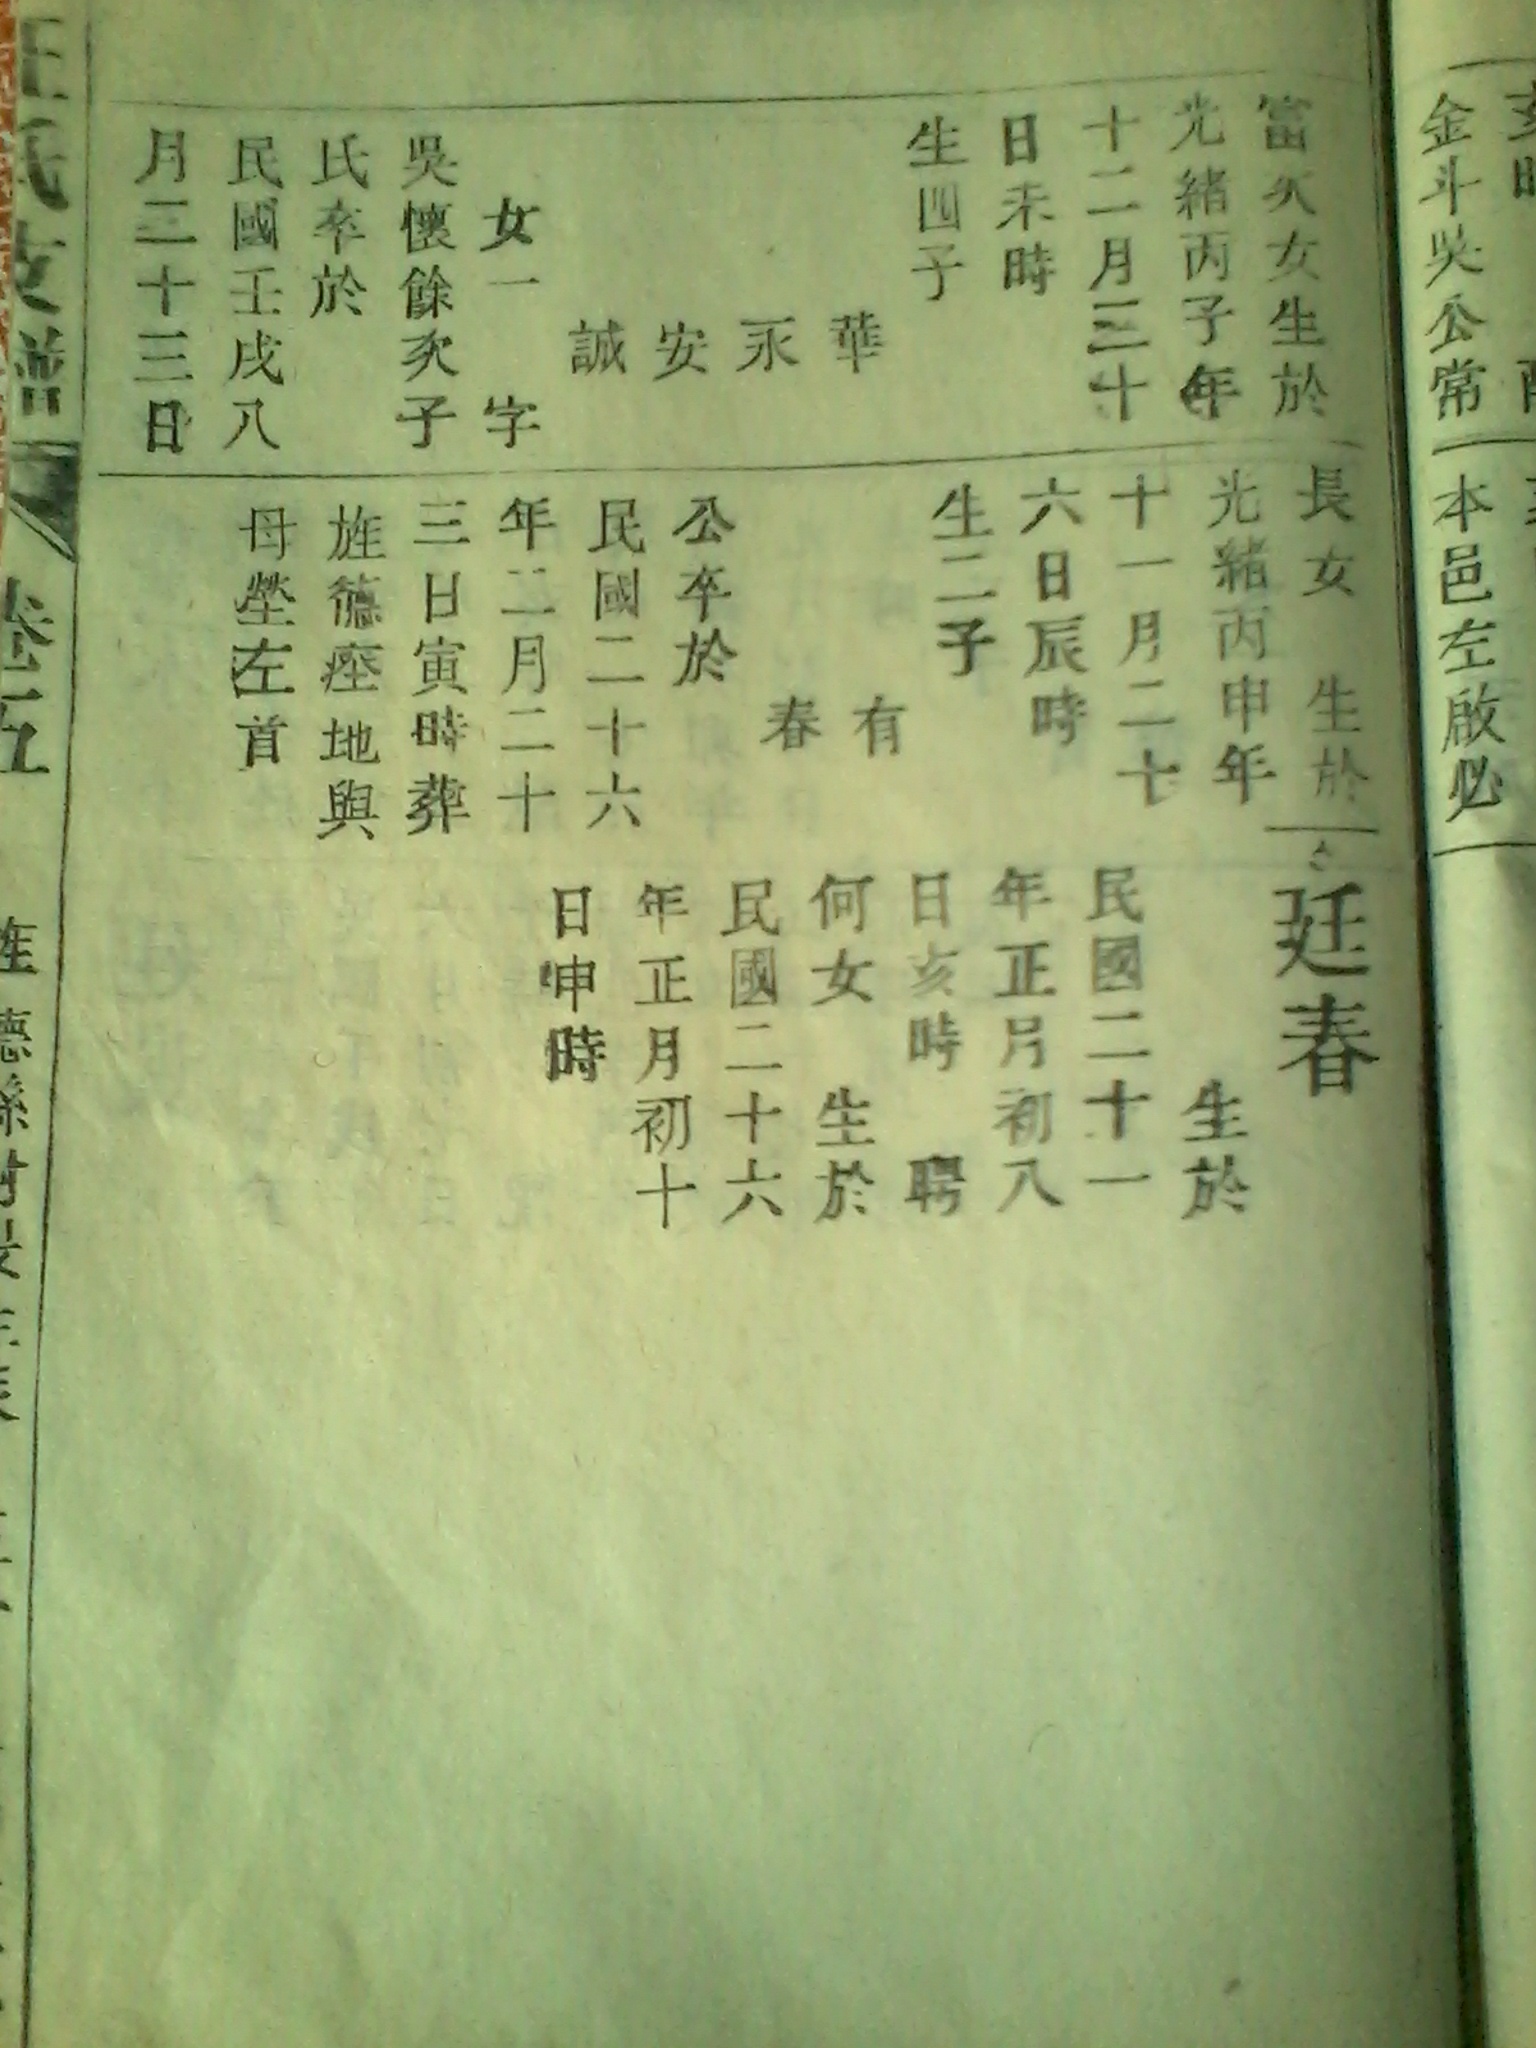 金斗吳公常
本邑左啟必
富次女生於
光緒丙子年
十二月三十
日未時
生四子
華
永
安
誠
女一 字
吳懷餘次子
氏卒於
民國壬戌八
月二十三日
長女 生於
光緒丙申年
十一月二十
六日辰時
生二子
有
春
公卒於
民國二十六
年二月二十
三日寅時葬
旌德塟地與
母塋左首
廷春
生於
民國二十一
年正月初八
日亥時 聘
何女 生於
民國二十六
年正月初十
日申時
卷五